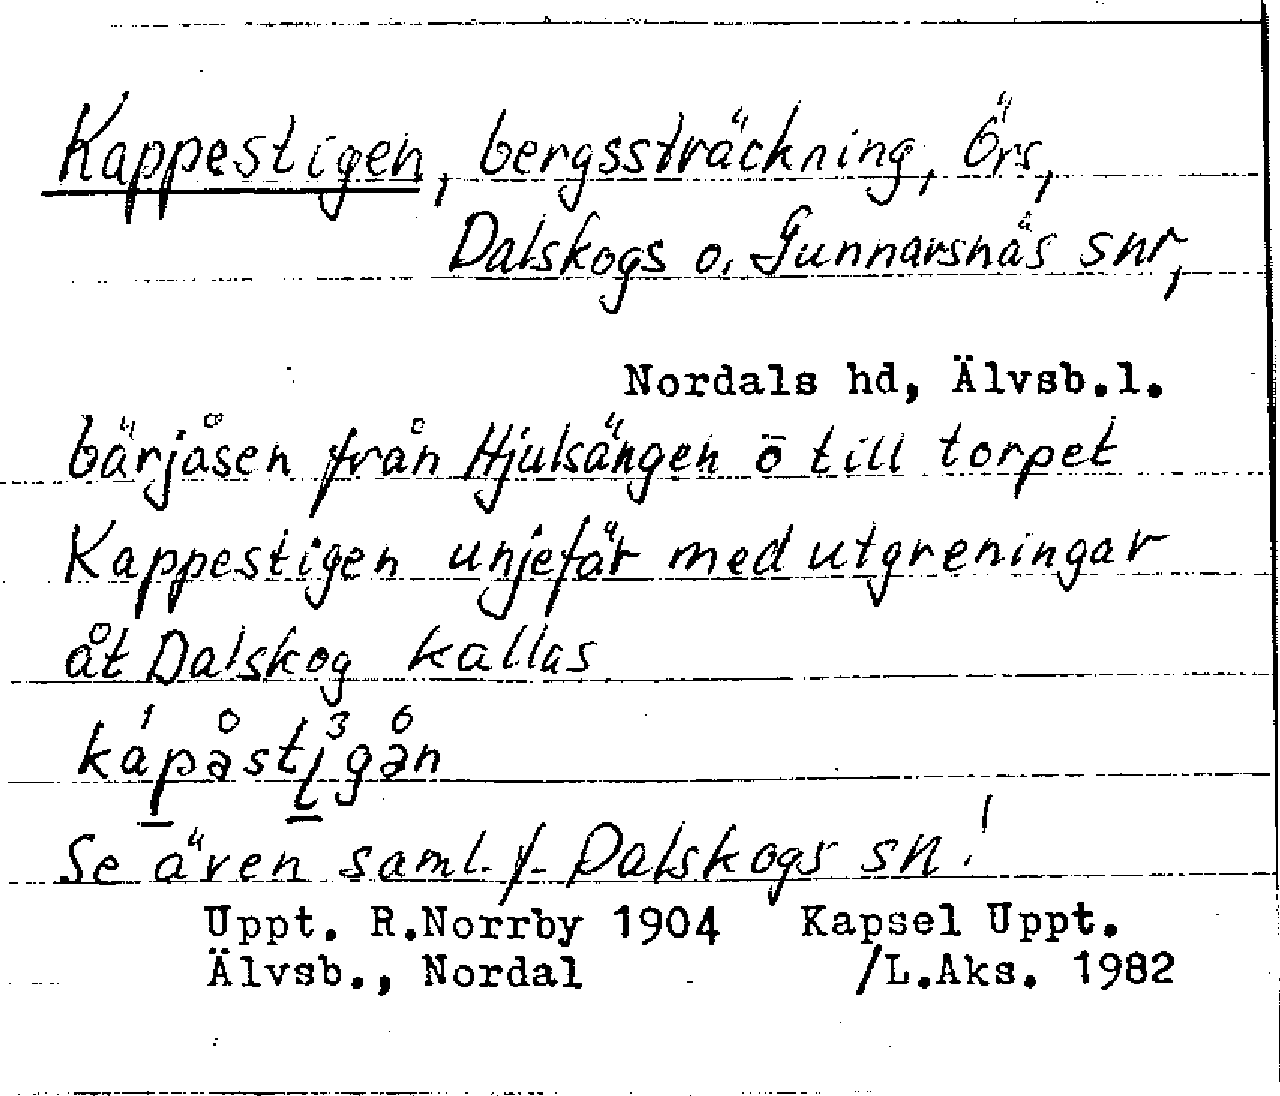 Kappestigen, bergssträckning, Örs,
Dalskogs o. Gunnarsnäs snr,
Nordals hd, Älvsb.l.
bärjåsen från Hjulsängen ō till torpet
Kappestigen unjefär med utgreningar
åt Dalskog kallas
Se även saml. f. Dalskogs sn!
Uppt. R.Norrby 1904 Kapsel Uppt.
Älvsb., Nordal /L.Aks. 1982